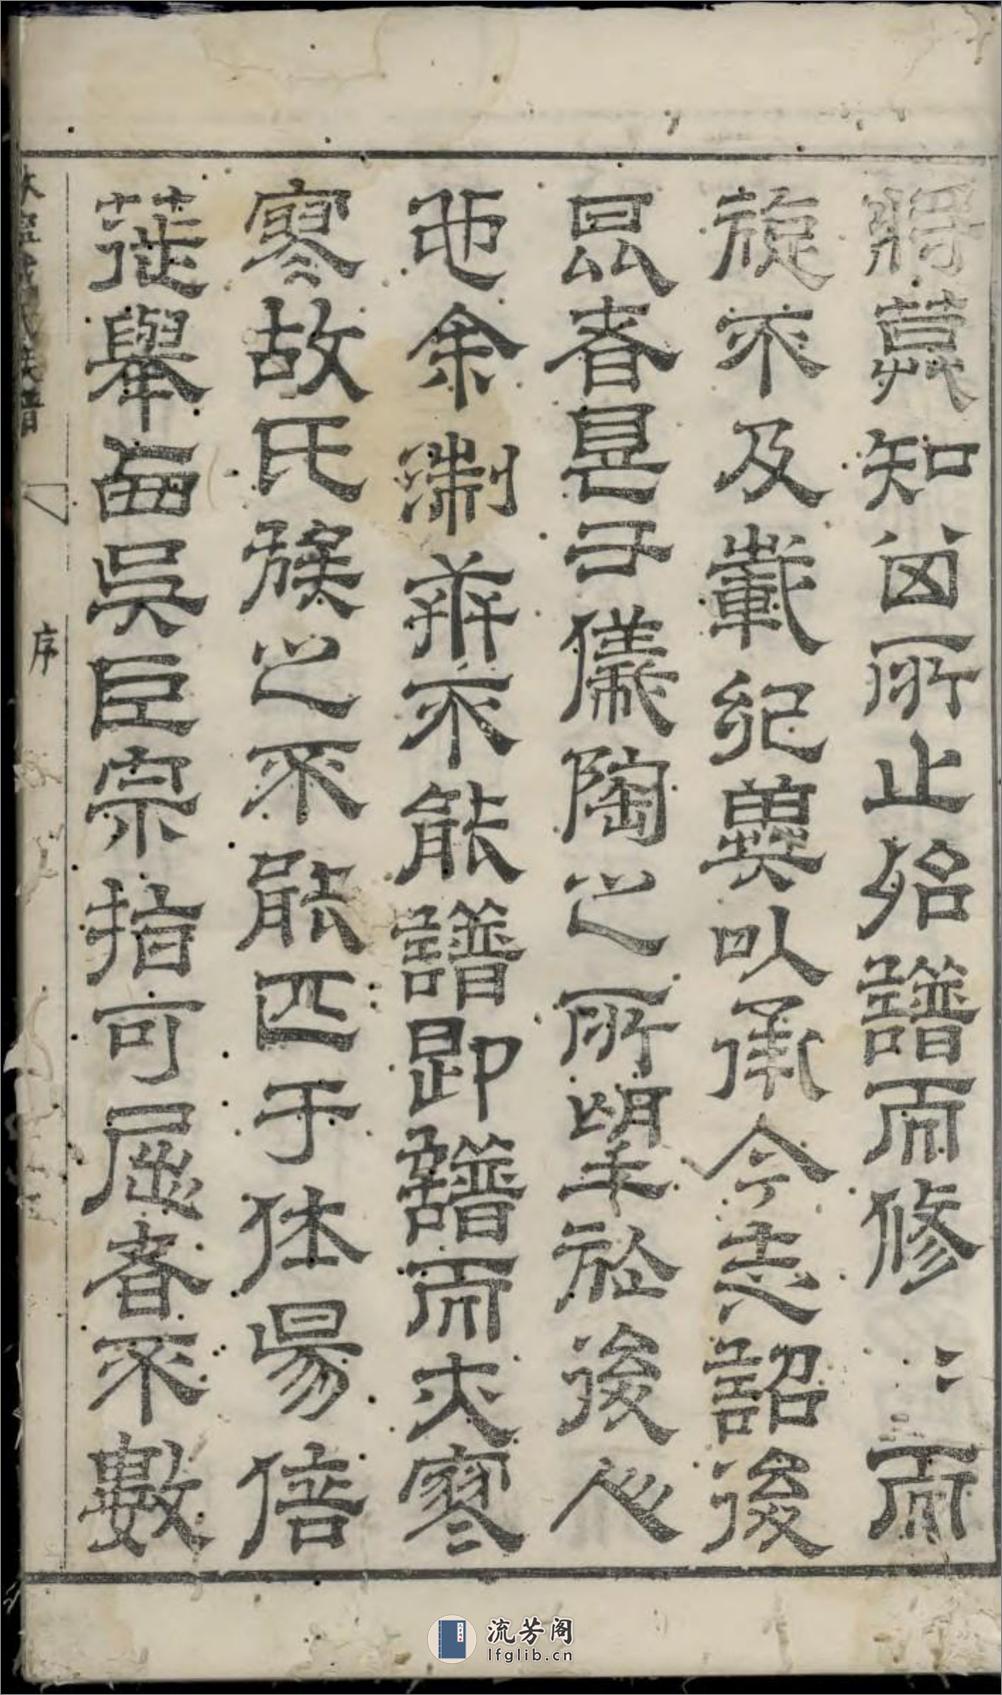 將莫知所止殆譜而修〻而
旋不及載紀冀以承今志詔後
昆者是子儀陶之所望於後人
也余淛不能譜即譜而夫寥
寥故氏族之不能匹于休易倍
蓰舉西吳臣宗指可屈者不數
序
流芳阁
lfglib.cn